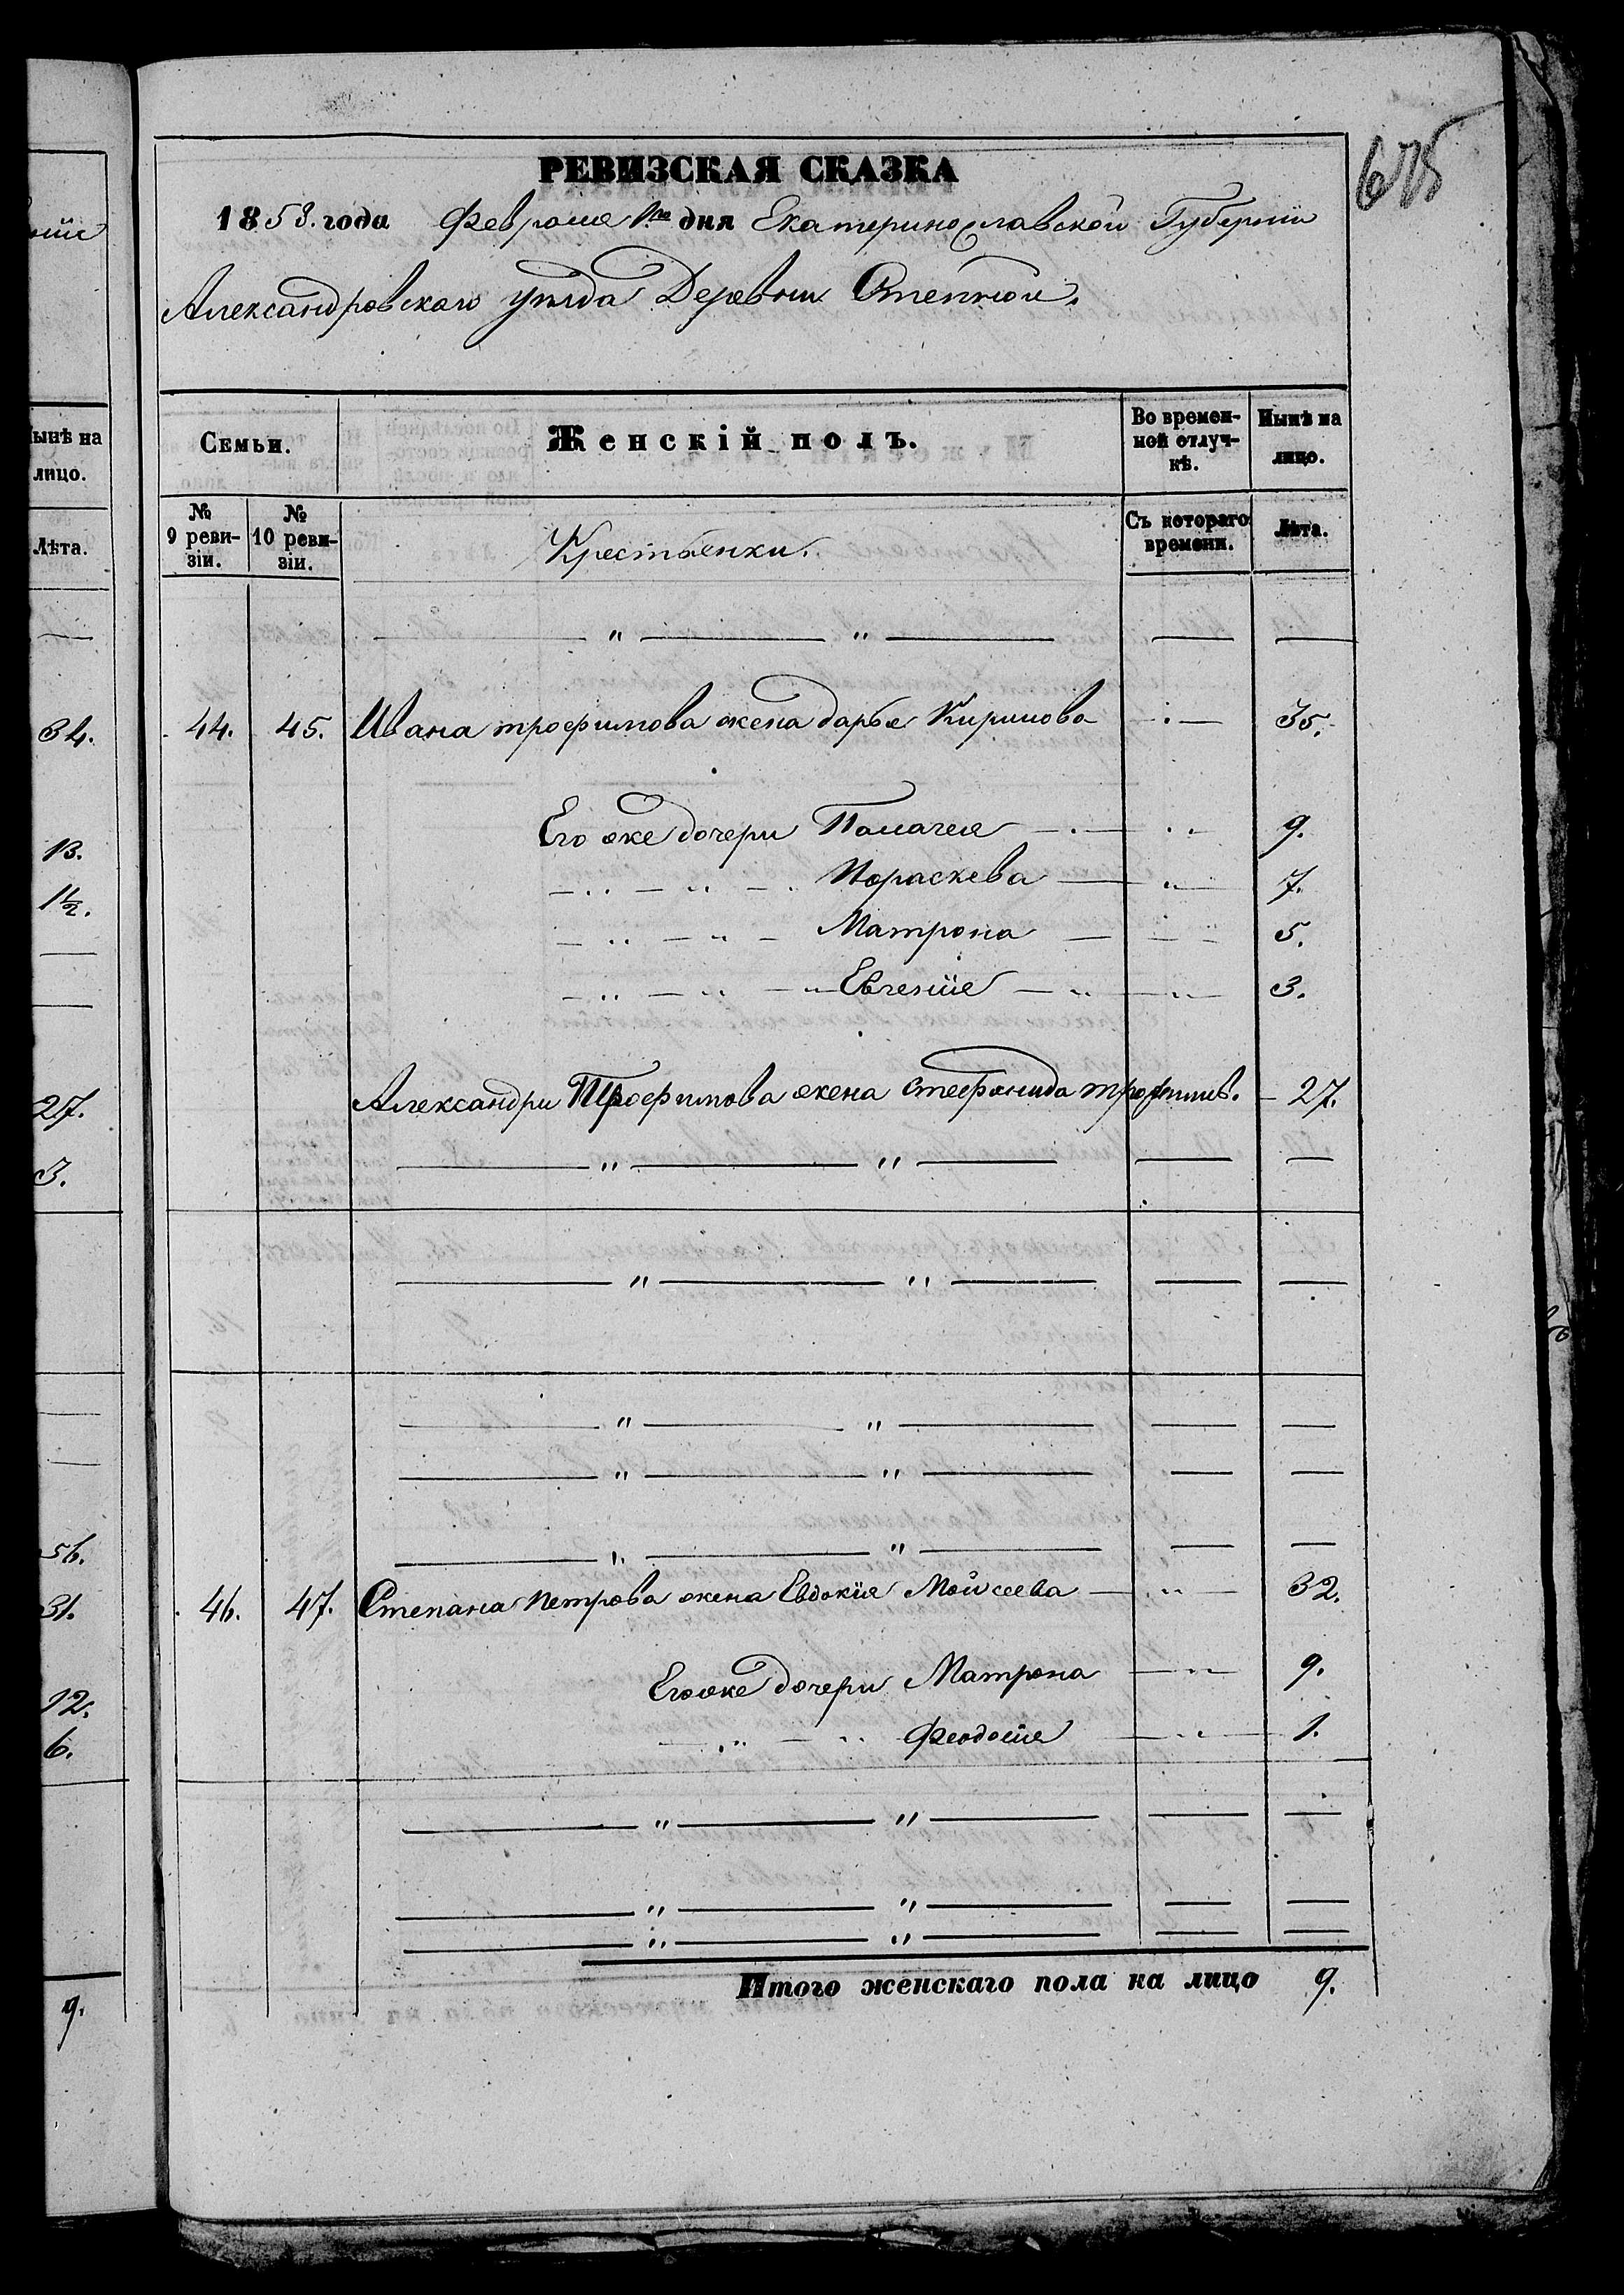 675
РЕВИЗСКАЯ СКАЗКА
1858. года Февраля 1го дня Екатеринославской Губернiи
Александровскаго уѣзда Деревни Степной.
Семьи.
Женскій полъ.
Во времен-
ной отлуч-
кѣ.
Нынѣ на
лицо.
№
9 реви-
зіи.
№
10 реви-
зіи.
Крестьянки.
Съ котораго
времени.
Лѣта.
— " — " — — —
44. 45. Ивана трофимова жена дарья Кирилова — 35.
Его же дочери Палагея — 9.
— " — " — Параскева — " — 7.
— " — " — Матрона — 5.
— " — " — Евгенiя — " — 3.
Александри Трофимова жена стефанида трофимов. — 27.
— " — " — — —
— " — " — — —
— " — " — — —
— " — " — — —
— " — " — — —
46. 47. Степана петрова жена Евдокiя Мойсеева — " — 32.
Его же дочери Матрона — " — 9.
— " — " Феодосiя — " — 1.
— " — " — — —
— " — " — — —
— " — " — — —
Итого женскаго пола на лицо 9.
нынѣ на
лицо.
Лѣта.
—
34.
13.
1½.
—
—
27.
3.
56.
31.
12.
6.
9.